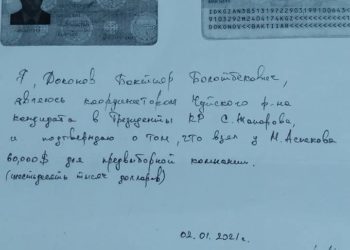 IDKGZAN3851319722903199100643
9103292M2404174KGZ<<<<<<<<<
DOKONOV<<BAKTIIAR<<<<<<<<<<
Я, Доконов Бактыяр Болотбекович,
являюсь координатором Чуйского р-на
кандидата в Президенты КР С. Жапарова,
и подтверждаю о том, что взял у М. Аспекова
60,000$ для предвыборной компании.
(шестьдесят тысяч долларов)
02.01.2021г.